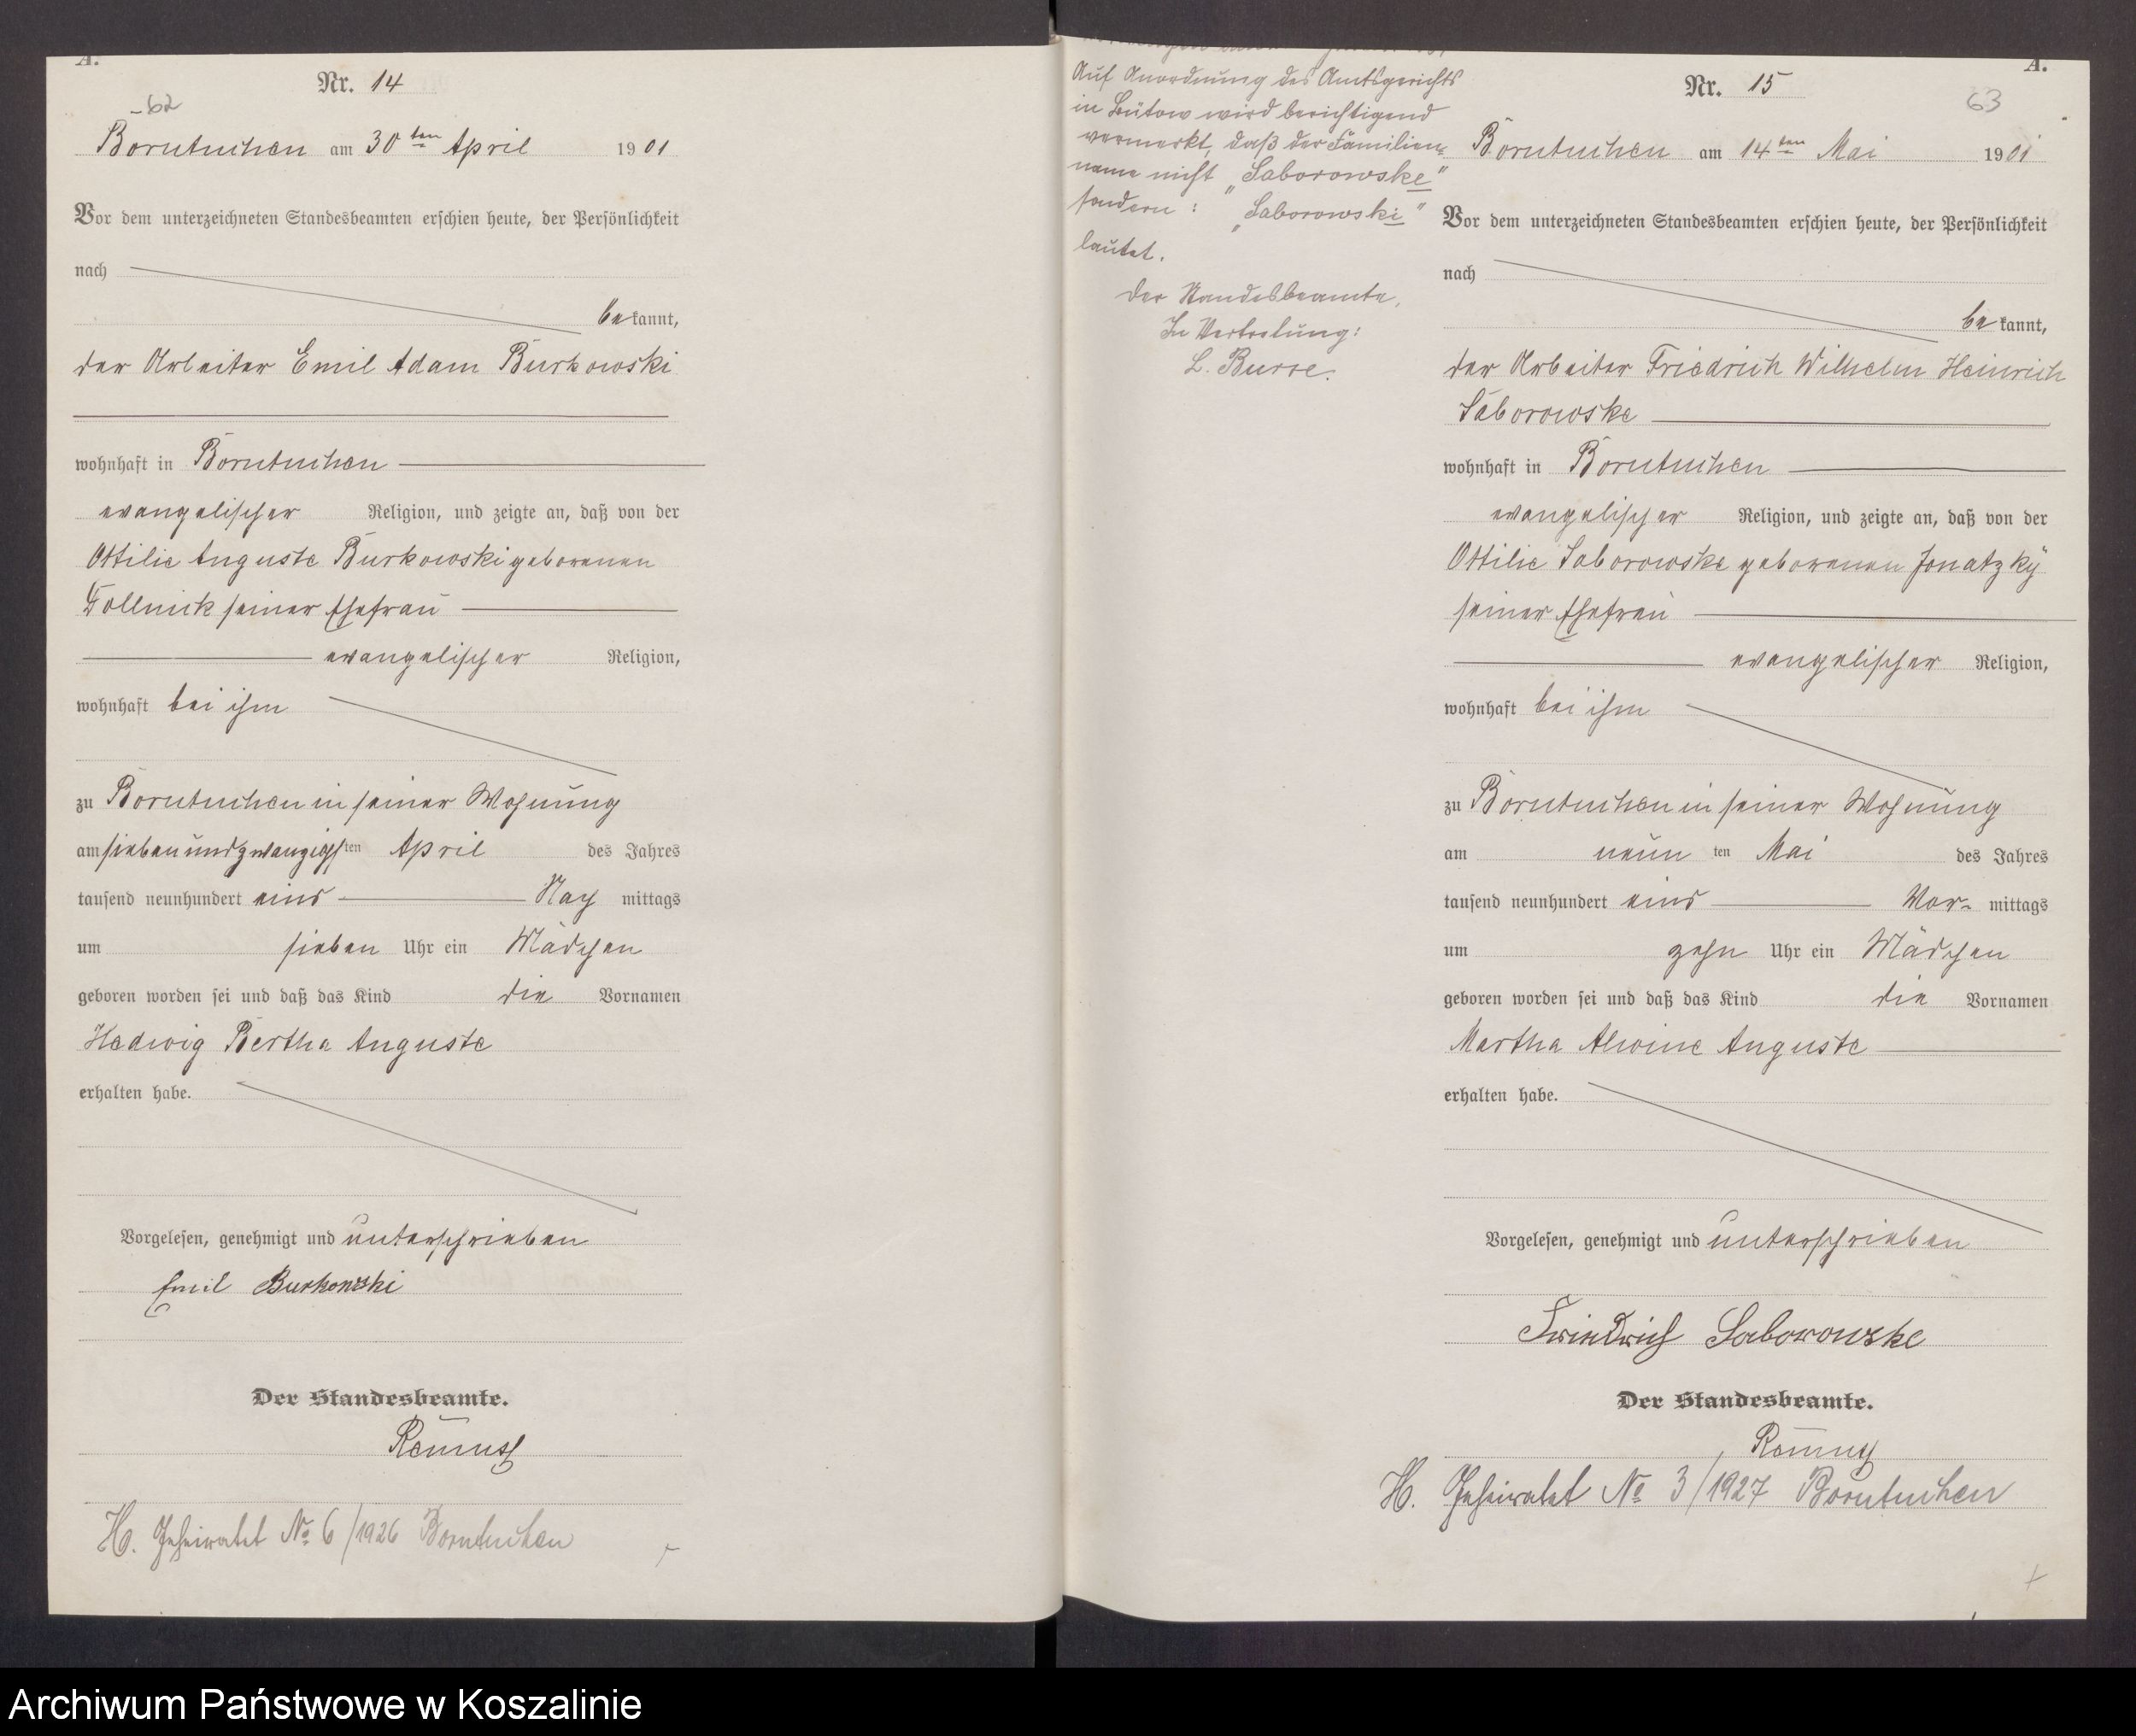 A.
Nr. 14
62
Borntuchen am 30ten April 1901
Vor dem unterzeichneten Standesbeamten erschien heute, der Persönlichkeit
nach
bekannt,
der Arbeiter Emil Adam Burkowski
wohnhaft in Borntuchen
evangelischer Religion, und zeigte an, daß von der
Ottilie Auguste Burkowski geborenen
Follmick seiner Ehefrau
evangelischer Religion,
wohnhaft bei ihm
zu Borntuchen in seiner Wohnung
am siebenundzwanzigsten April des Jahres
tausend neunhundert eins Nach mittags
um sieben Uhr ein Mädchen
geboren worden sei und daß das Kind die Vornamen
Hedwig Bertha Auguste
erhalten habe.
Vorgelesen, genehmigt und unterschrieben
Emil Burkowski
Der Standesbeamte.
H. Geheiratet No 6/1926 Borntuchen
Auf Anordnung des Amtsgerichts
in Bütow wird berichtigend
vermerkt, daß der Familien-
name nicht "Saborowske"
sondern: "Saborowski"
lautet.
Der Standesbeamte,
In Vertretung:
A.
Nr. 15
63
Borntuchen am 14ten Mai 1901
Vor dem unterzeichneten Standesbeamten erschien heute, der Persönlichkeit
nach
bekannt,
der Arbeiter Friedrich Wilhelm Heinrich
Saborowske
wohnhaft in Borntuchen
evangelischer Religion, und zeigte an, daß von der
Ottilie Saborowske geborenen Jonatzky
seiner Ehefrau
evangelischer Religion,
wohnhaft bei ihm
zu Borntuchen in seiner Wohnung
am neunten Mai des Jahres
tausend neunhundert eins Vor- mittags
um zehn Uhr ein Mädchen
geboren worden sei und daß das Kind die Vornamen
Martha Alwine Auguste
erhalten habe.
Vorgelesen, genehmigt und unterschrieben
Friedrich Saborowske
Der Standesbeamte.
H. Geheiratet No 3/1927 Borntuchen
Archiwum Państwowe w Koszalinie